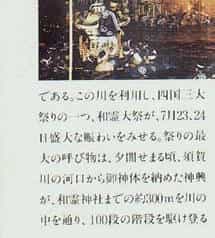 である。この川を利用し、四国三大
祭りの一つ、和霊大祭が、7月23、24
日盛大な賑わいをみせる。祭りの最
大の呼び物は、夕闇せまる頃、須賀
川の河口から御神体を納めた神輿
が、和霊神社までの約300mを川の
中を通り、100段の階段を駆け登る